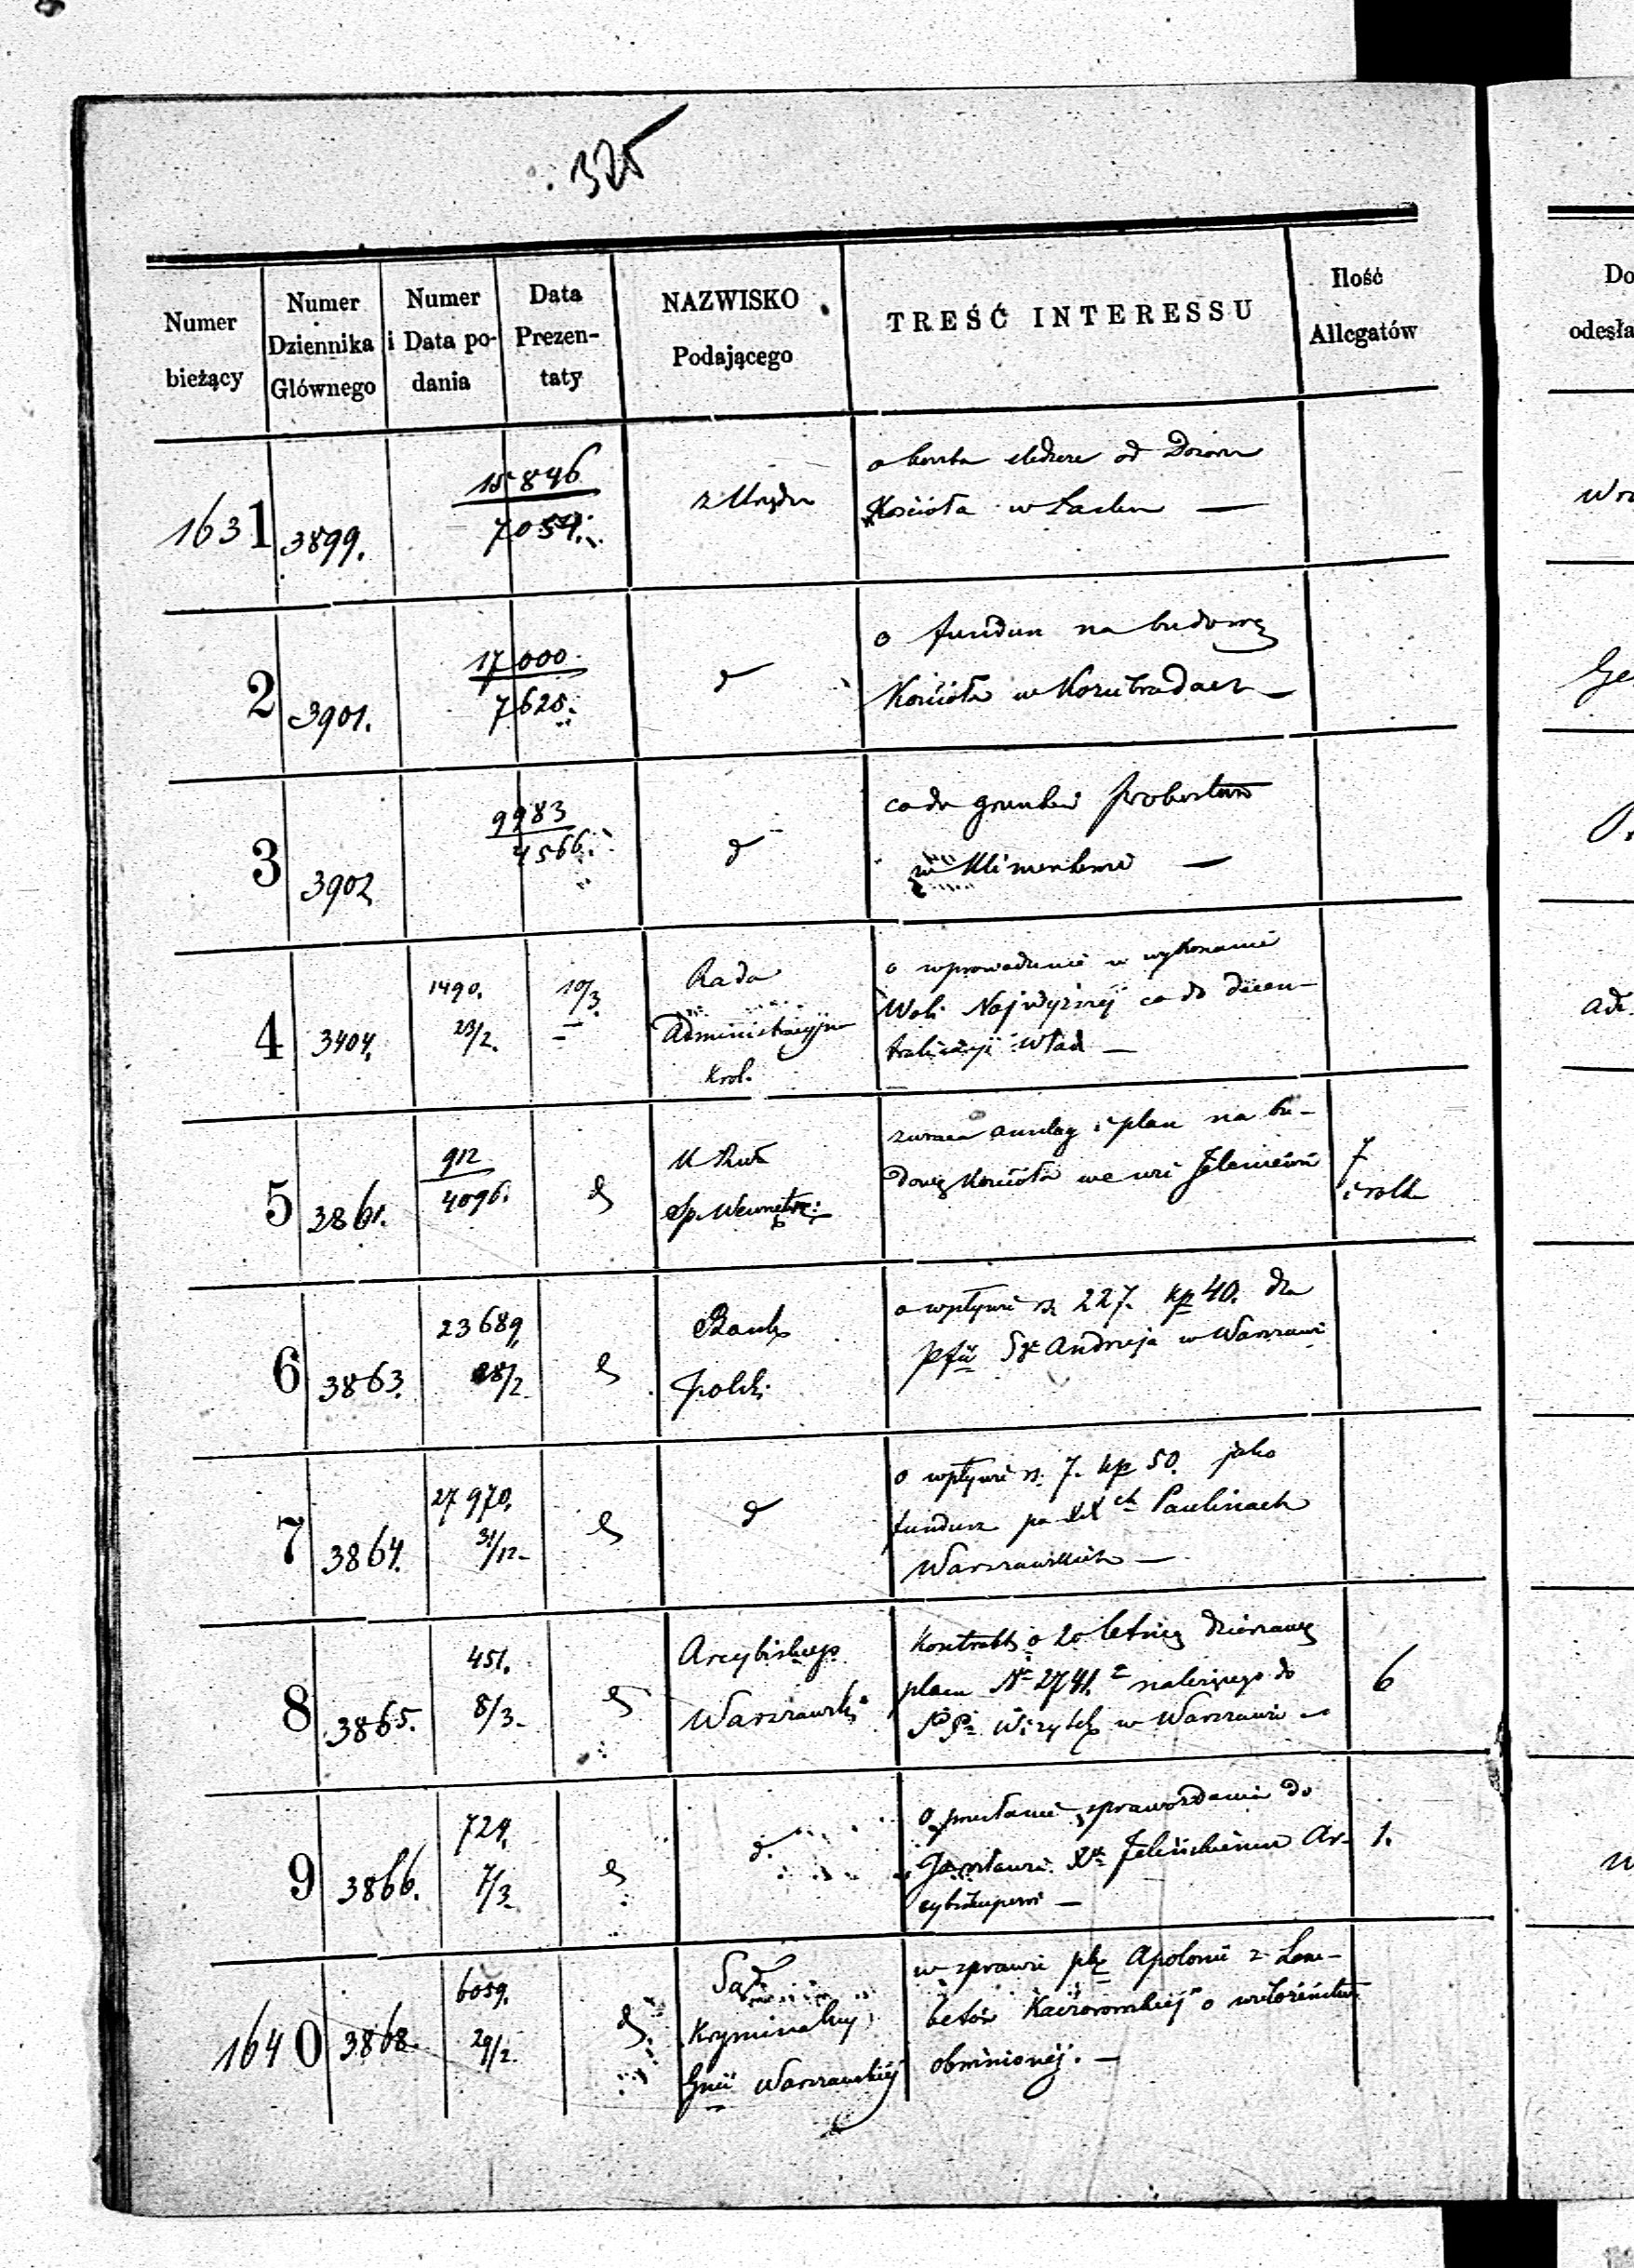 325
Numer bieżący
Numer Dziennika Głównego
Numer i Data podania
Data Prezentaty
NAZWISKO Podającego
TREŚĆ INTERESSU
Ilość Allegatów
Do
odesła
1631 3899. 15846 z Urzędu o od Dozoru
7054. Kościoła w
2 3901. 17000. d o fundusz na budowę
7625. Kościoła w
3 3902 9983 d co do gruntów probostwa
4566. w
4 3404. 1490. 10/3. Rada o wprowadzenie w wykonanie
23/2. Administracyjna Woli Najwyższej co do decen-
Król. tralizacyi Władz —
5 3861. 912 d zwraca anszlag i plan na bu- 7
4096. Sp. Wewnętrz: dowę Kościoła we wsi Jeleniewie
6 3863. 23689. d Bank o wpływie rs. 227. kp 40. dla
28/2. Polski Sgo Andrzeja w Warszawie
7 3864. 27970. d d o wpływie rs. 7. kp 50. jako
31/12. fundusz po XXch Paulinach
Warszawskich —
8 3865. 451. d Arcybiskup Kontrakt o 20 letnią dzierżawę 6
8/3. Warszawski placu No 2741. należącego do
PP. Wizytek w Warszawie
9 3866. 724. d d. o przesłanie sprawozdania do 1.
7/3. Felińskiemu Ar-
cybiskupowi —
1640 3868. 6059. d Sąd w sprawie Apolonii z Lem-
29/2. Kryminalny betów Kaczorowskiej o
Gnii Warszawskiéj obwinionéj. —